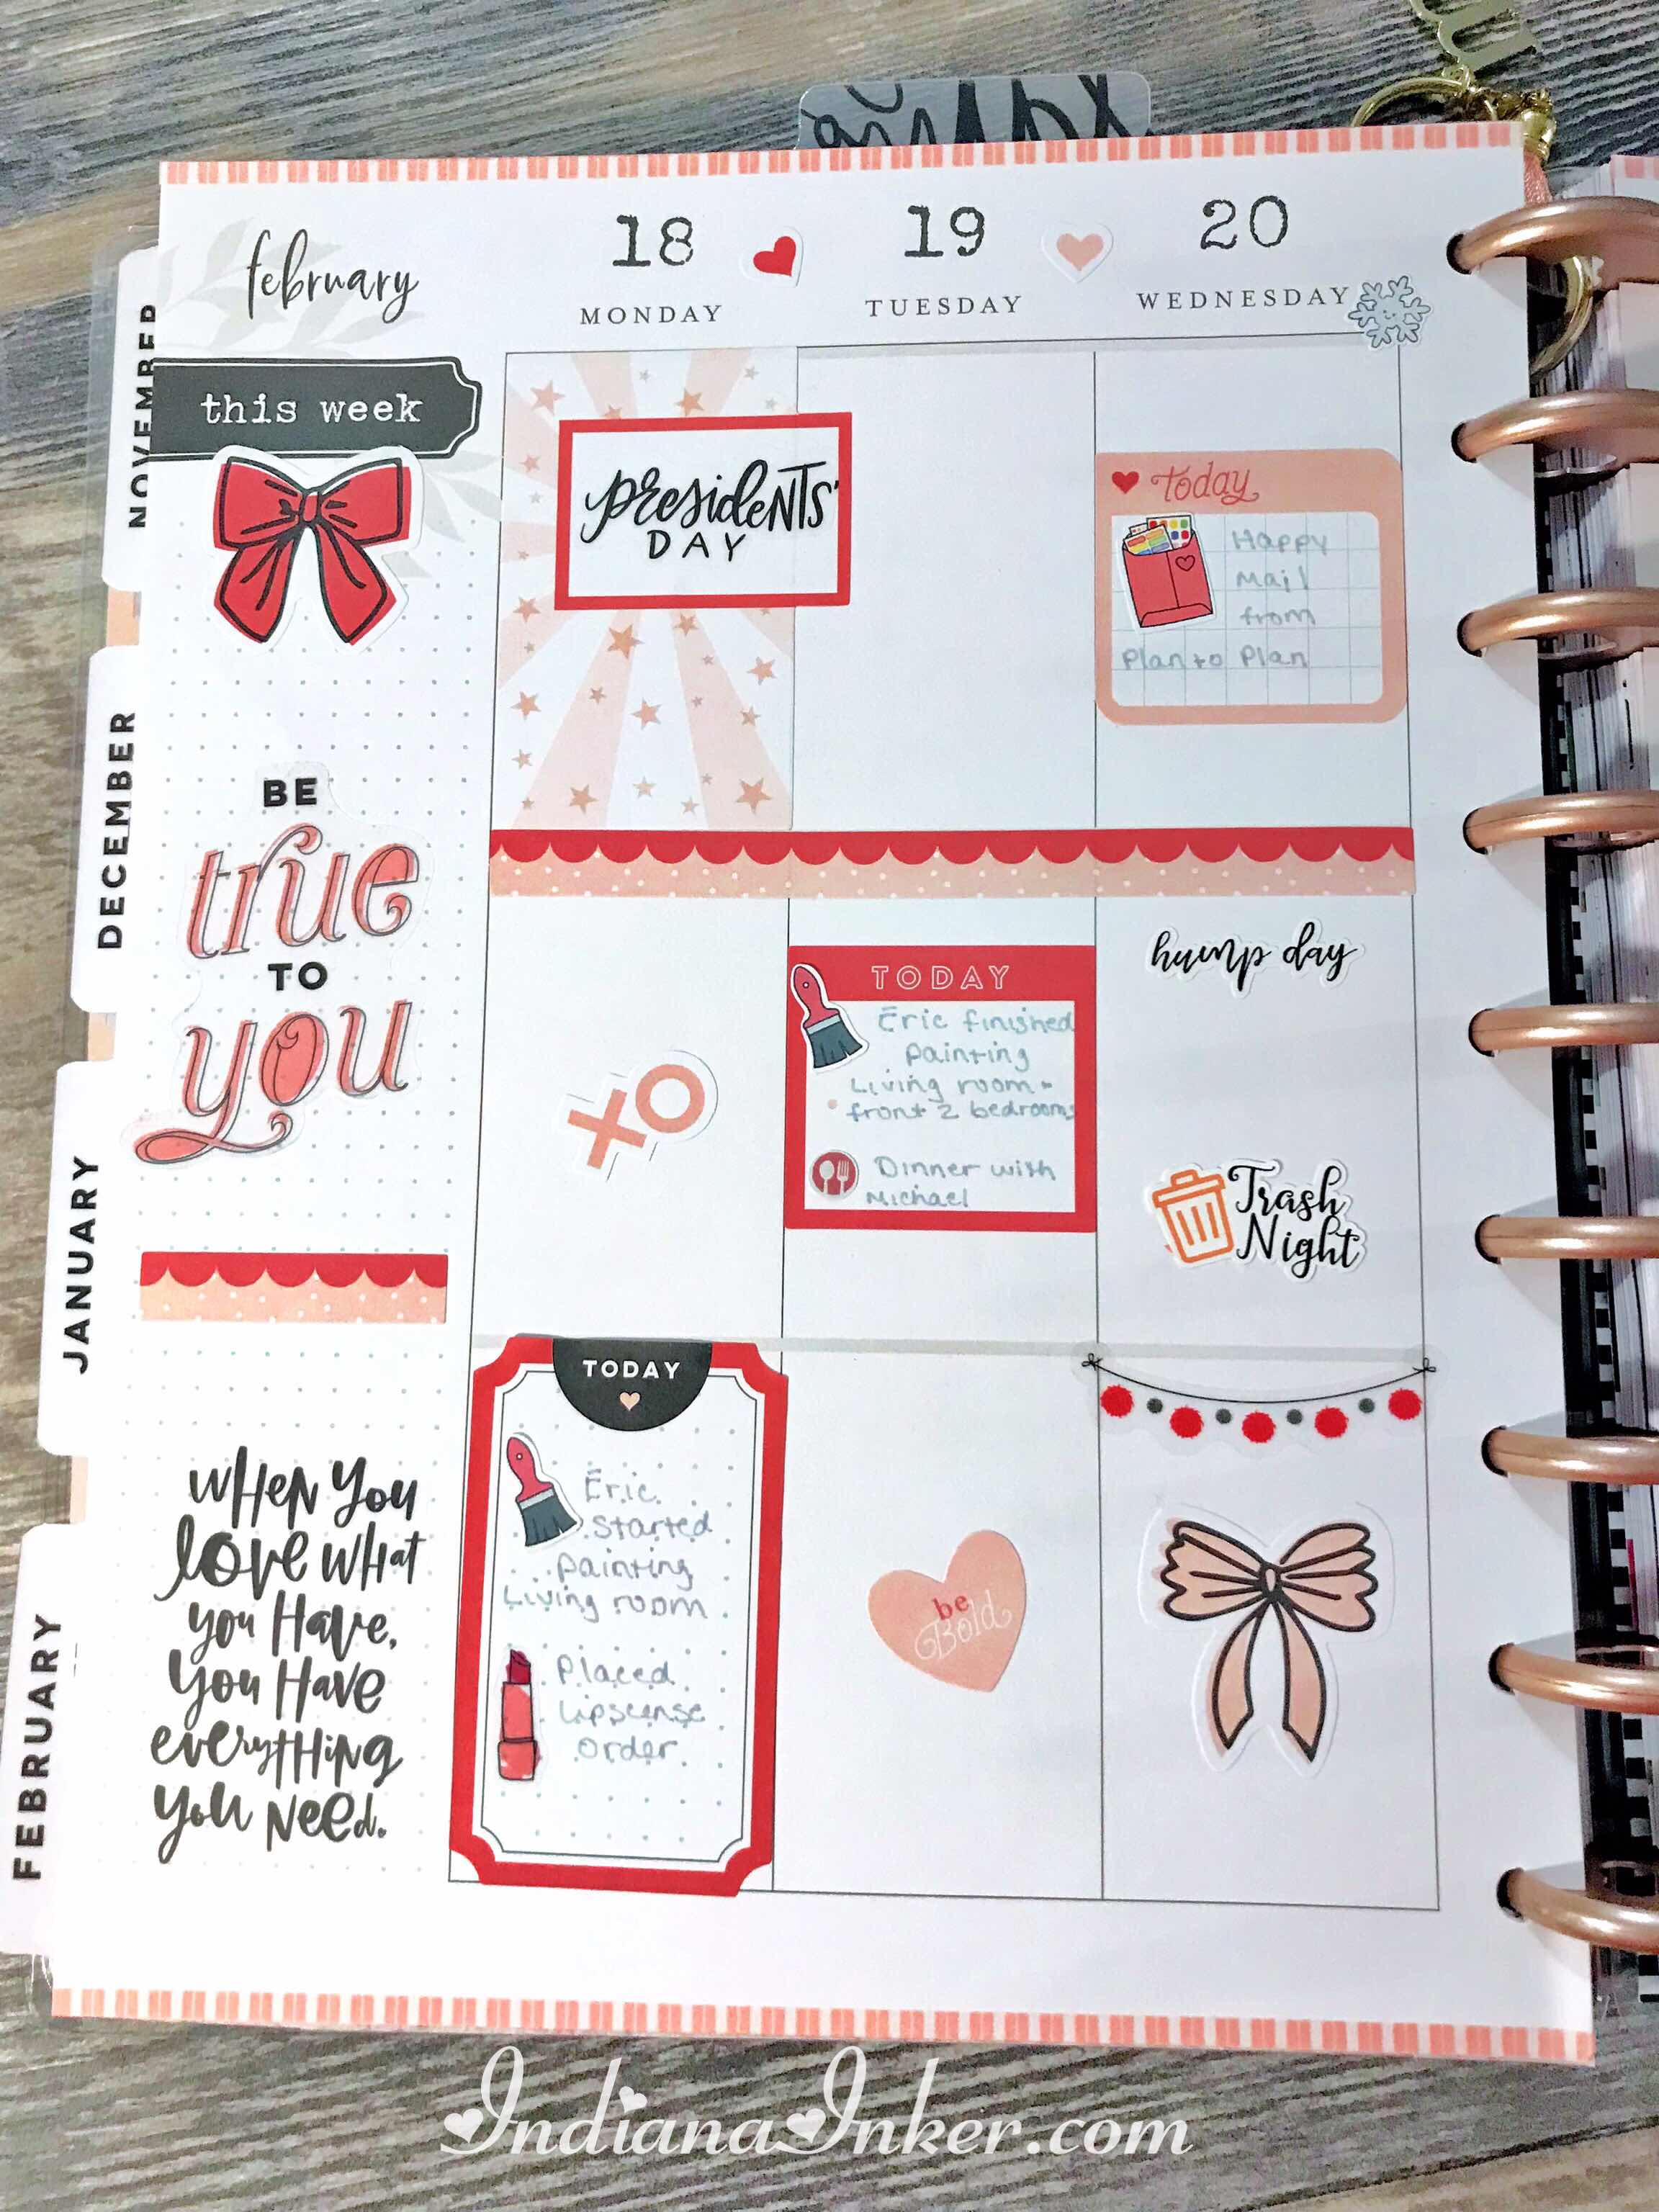 february
18
19
20
MONDAY
TUESDAY
WEDNESDAY
NOVEMBER
DECEMBER
JANUARY
FEBRUARY
this week
BE
true
TO
you
WHEN YOU
LOVE WHAT
YOU HAVE,
YOU HAVE
EVERYTHING
YOU NEED.
PRESIDENTS'
DAY
XO
TODAY
Eric
Started
painting
Living room
Placed
Lipscense
order
TODAY
Eric finished
painting
Living room -
front 2 bedrooms
Dinner with
Michael
be
Bold
today
Happy
Mail
from
Plan to Plan
hump day
Trash
Night
IndianaInker.com